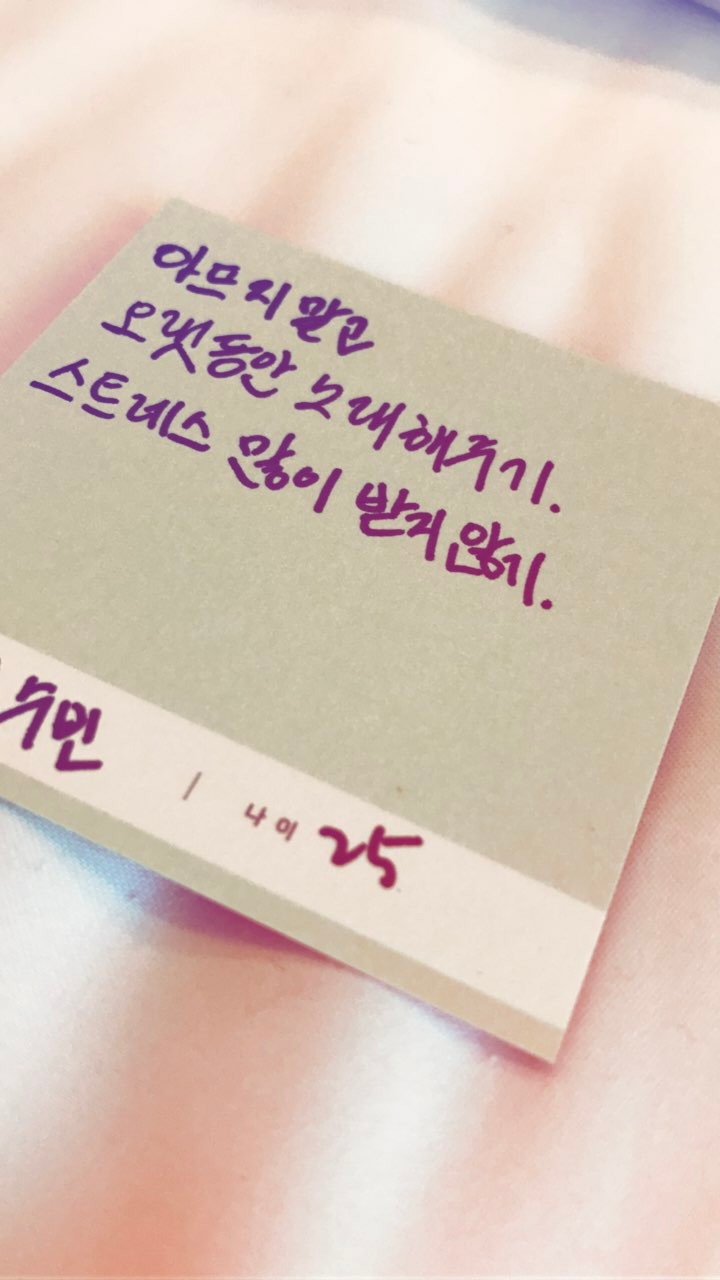 아프지 말고
오랫동안 노래해주기.
스트레스 많이 받지 않기.
수민 | 나이 25